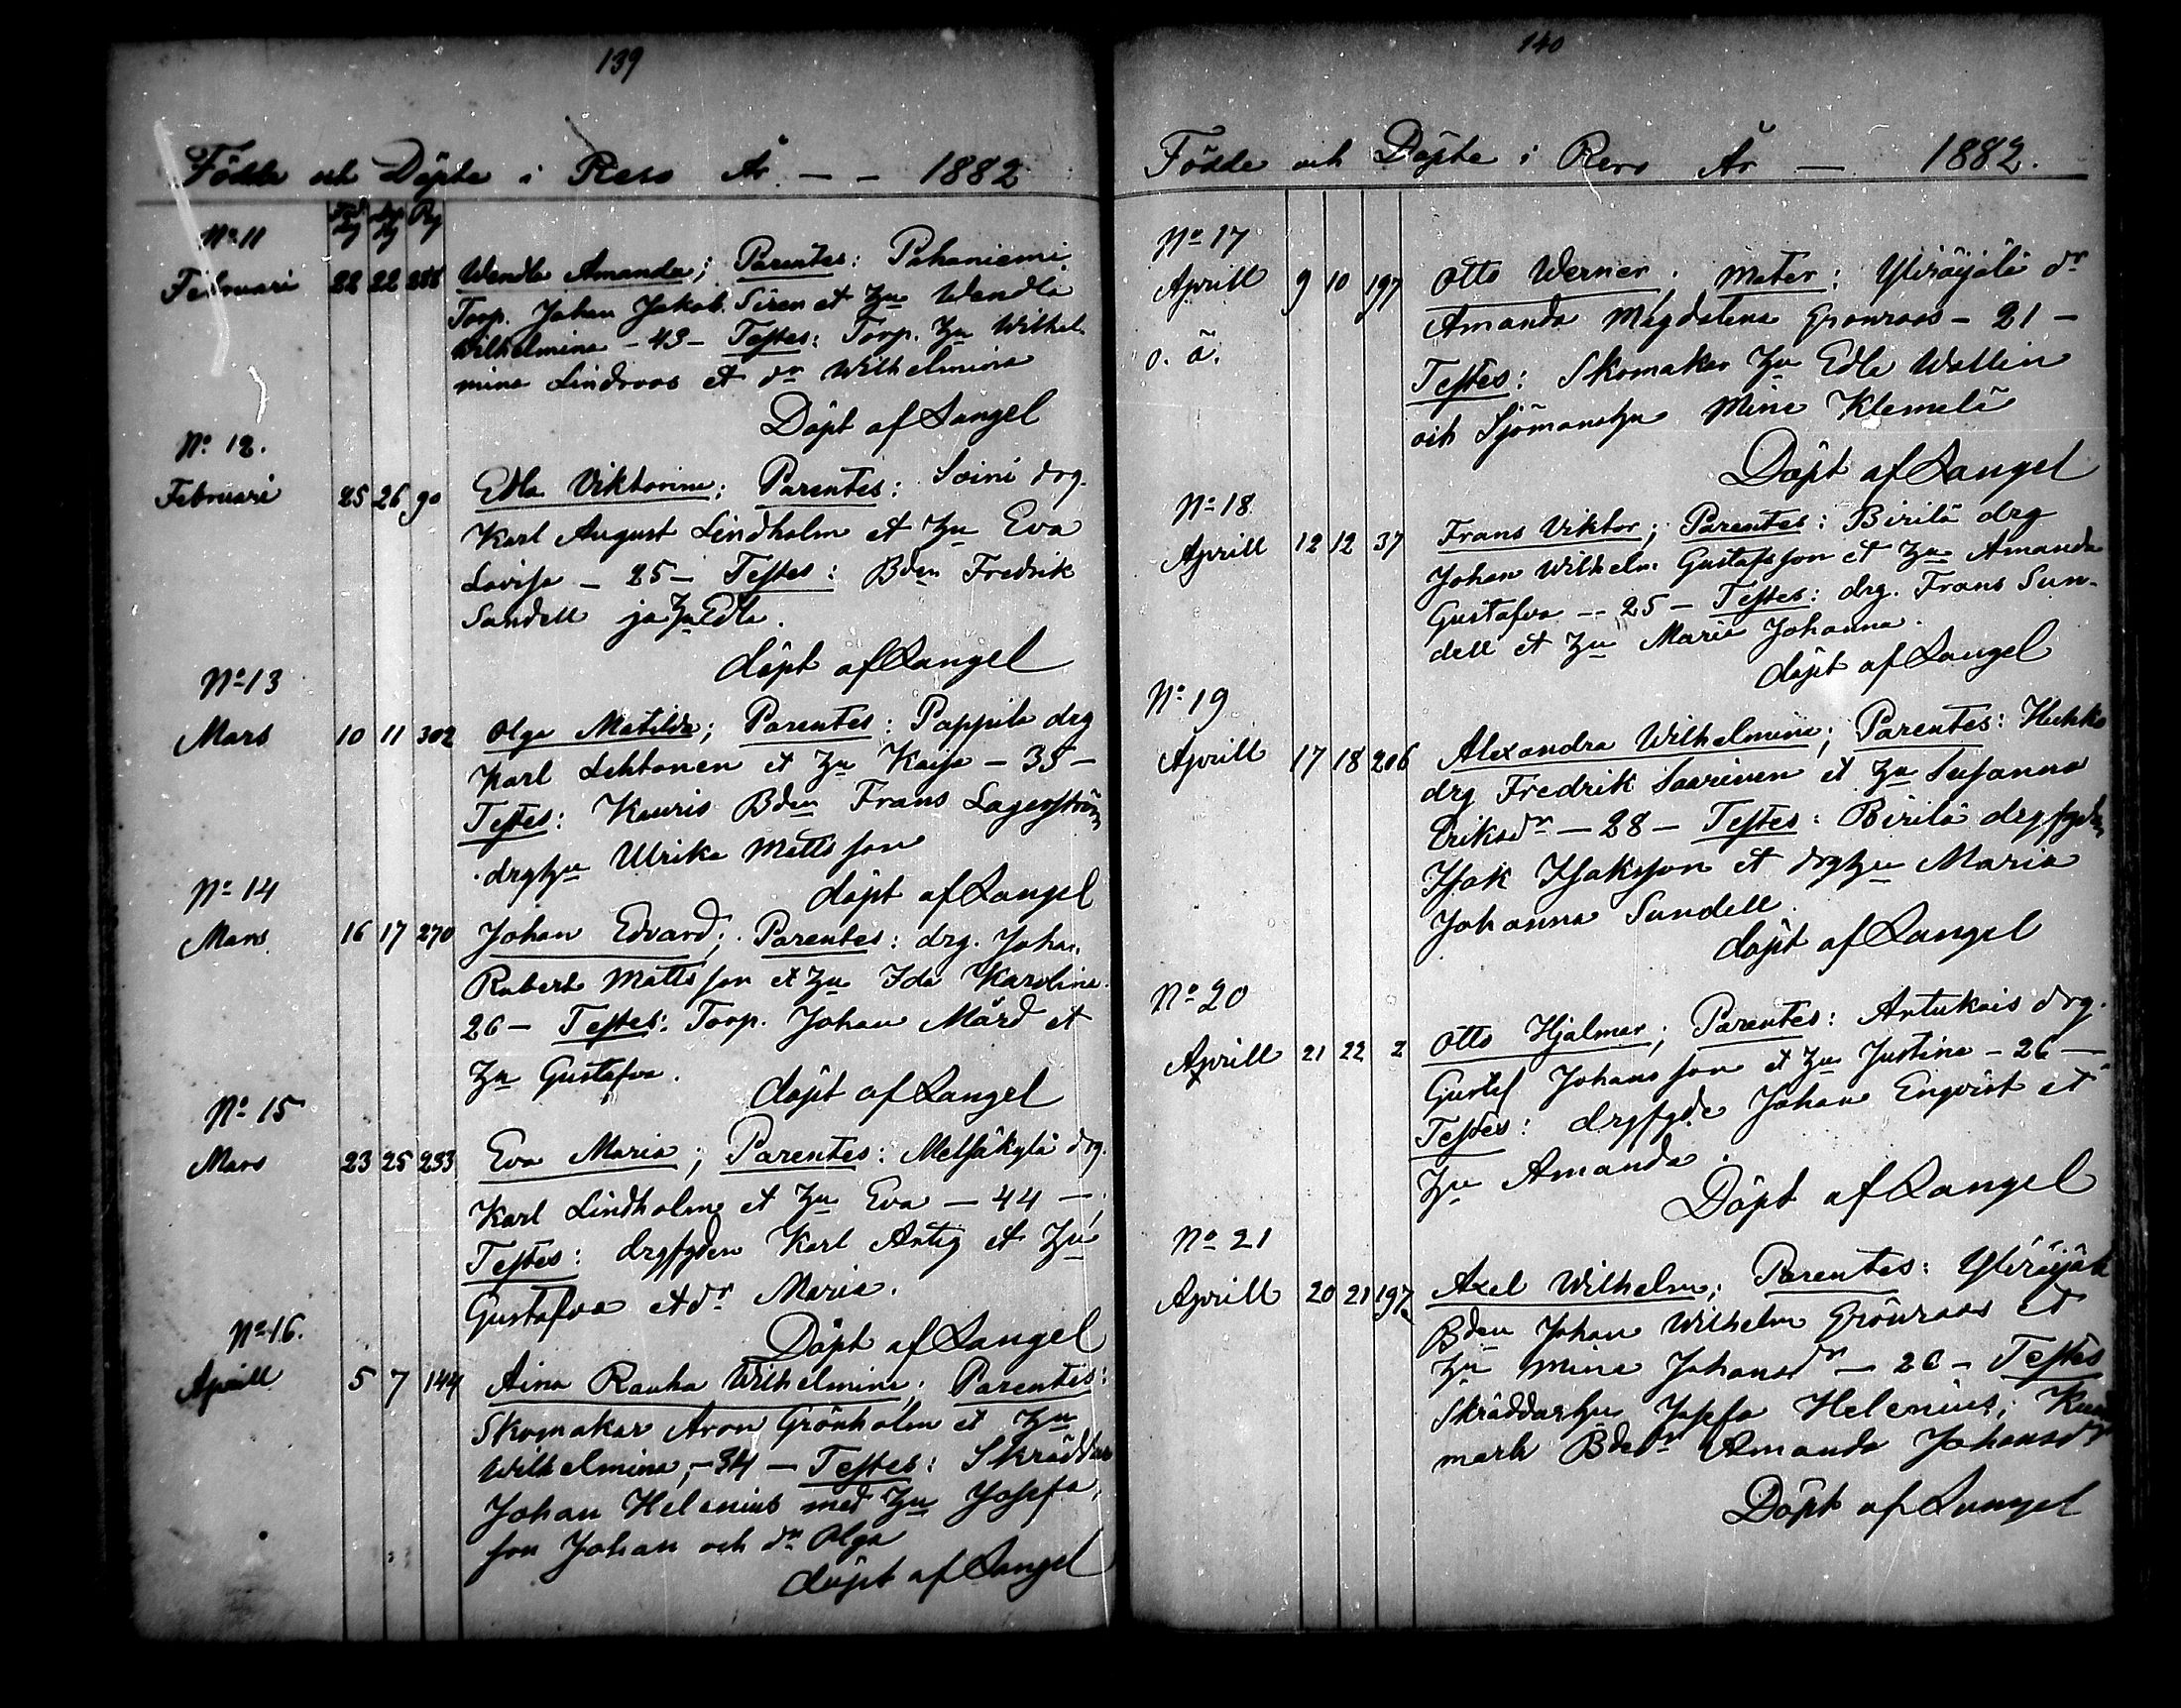 139
Födde och Döpte i Reso År - - 1882
Föd. Dg Döp. Dg Pag
No 11
Februari 22 22 Wendla Amanda; Parentes: Pahaniemi
Torp. Johan Jakob Siren et Hu Wendla
Wilhelmina - 43 - Testes: Torp. Hu Wilhel-
mina Lindroos et dr Wilhelmina
Döpt af Langel
No 12.
Februari 25 26 90 Edla Viktorina; Parentes: Soini drg.
Karl August Lindholm et Hu Eva
Lovisa - 25 - Testes: Bden Fredrik
Sundell ja Hu Edla.
döpt af Langel
No 13
Mars 10 11 302 Olga Matilda; Parentes: Pappila drg
Karl Lehtonen et Hu Kajsa - 35 -
Testes: Kauris Bden Frans Lagerström
drghu Ulrika Mattsson
döpt af Langel
No 14
Mars 16 17 270 Johan Edvard; Parentes: drg. Johan
Robert Mattsson et Hu Ida Karolina
26 - Testes: Torp. Johan Mård et
Hu Gustafva.
döpt af Langel
No 15
Mars 23 25 233 Eva Maria; Parentes: Metsäkylä drg.
Karl Lindholm et Hu Eva - 44 -
Testes: drgfgden Karl Antig et Hu
Gustafva et dr Maria.
Döpt af Langel
No 16.
Aprill 5 7 144 Aina Rauha Wilhelmina; Parentes:
Skomakar Aron Grönholm et Hu
Wilhelmina, - 34 - Testes: Skräddar
Johan Helenius med Hu Josefa,
son Johan och dr Olga
döpt af Langel
140
Födde och Döpte i Reso År - 1882.
No 17
Aprill 9 10 197 Otto Werner; Mater: Yliröyjäla dr
Amanda Magdalena Grönroos - 21 -
o. ä.
Testes: Skomakar Hu Edla Wallin
och Sjömanshu Mina Klemelä
Döpt af Langel
No 18
Aprill 12 12 37 Frans Viktor; Parentes: Birilä drg
Johan Wilhelm Gustafsson et Hu Amanda
Gustafva - 25 - Testes: drg. Frans Sun-
dell et Hu Maria Johanna.
döpt af Langel
No 19
Aprill 17 18 206 Alexandra Wilhelmina; Parentes: Hukka
drg Fredrik Saarinen et Hu Susanna
Eriksdr - 28 - Testes: Birilä drgfgden
Isak Isaksson et drghu Maria
Johanna Sundell.
döpt af Langel
No 20
Aprill 21 22 2 Otto Hjalmar; Parentes: Artukais drg.
Gustaf Johansson et Hu Justina - 26 -
Testes: drgfgde Johan Enqvist et
Hu Amanda.
Döpt af Langel
No 21
Aprill 20 21 197 Axel Wilhelm; Parentes: Yliröyjälä
Bden Johan Wilhelm Grönroos et
Hu Mina Johansdr - 26 - Testes
Skräddarhu Josefa Helenius,
mark Bdedr Amanda Johansdr
Döpt af Langel